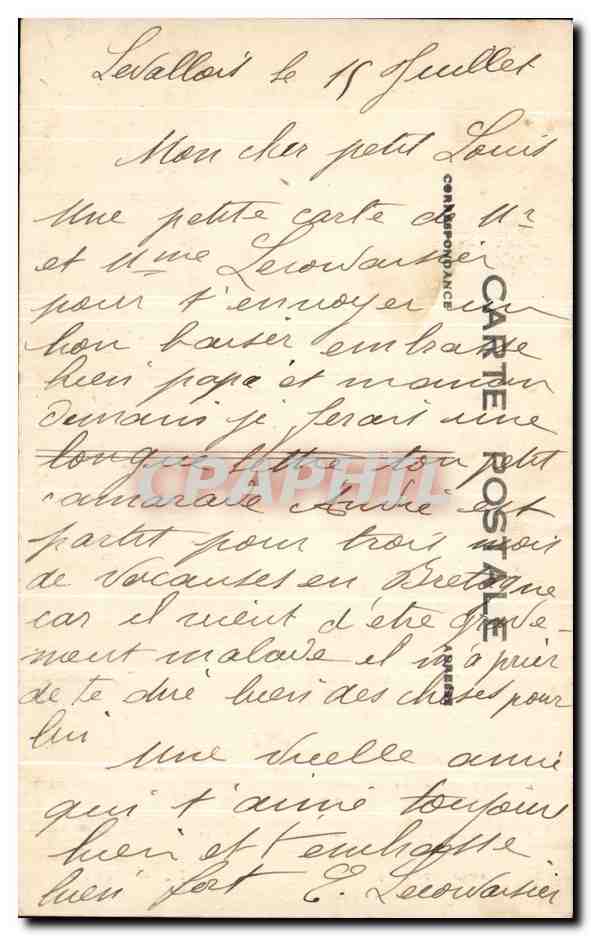 Levallois le 15 Juillet
Mon cher petit Louis
Une petite carte de Mr
et Mme Lecouvarsier
pour t'envoyer un
bon baiser embrasse
bien papa et maman
demain je ferais une
longue lettre ton petit
camarade André est
partit pour trois mois
de vacanses en Bretagne
car il vient d'être grave-
ment malade il m'a prier
de te dire bien des choses pour
lui
Une vielle amie
qui t'aime toujours
bien et t'embrasse
bien fort E. Lecouvarsier
CORRESPONDANCE
CARTE POSTALE
ADRESSE
CPAPHIL